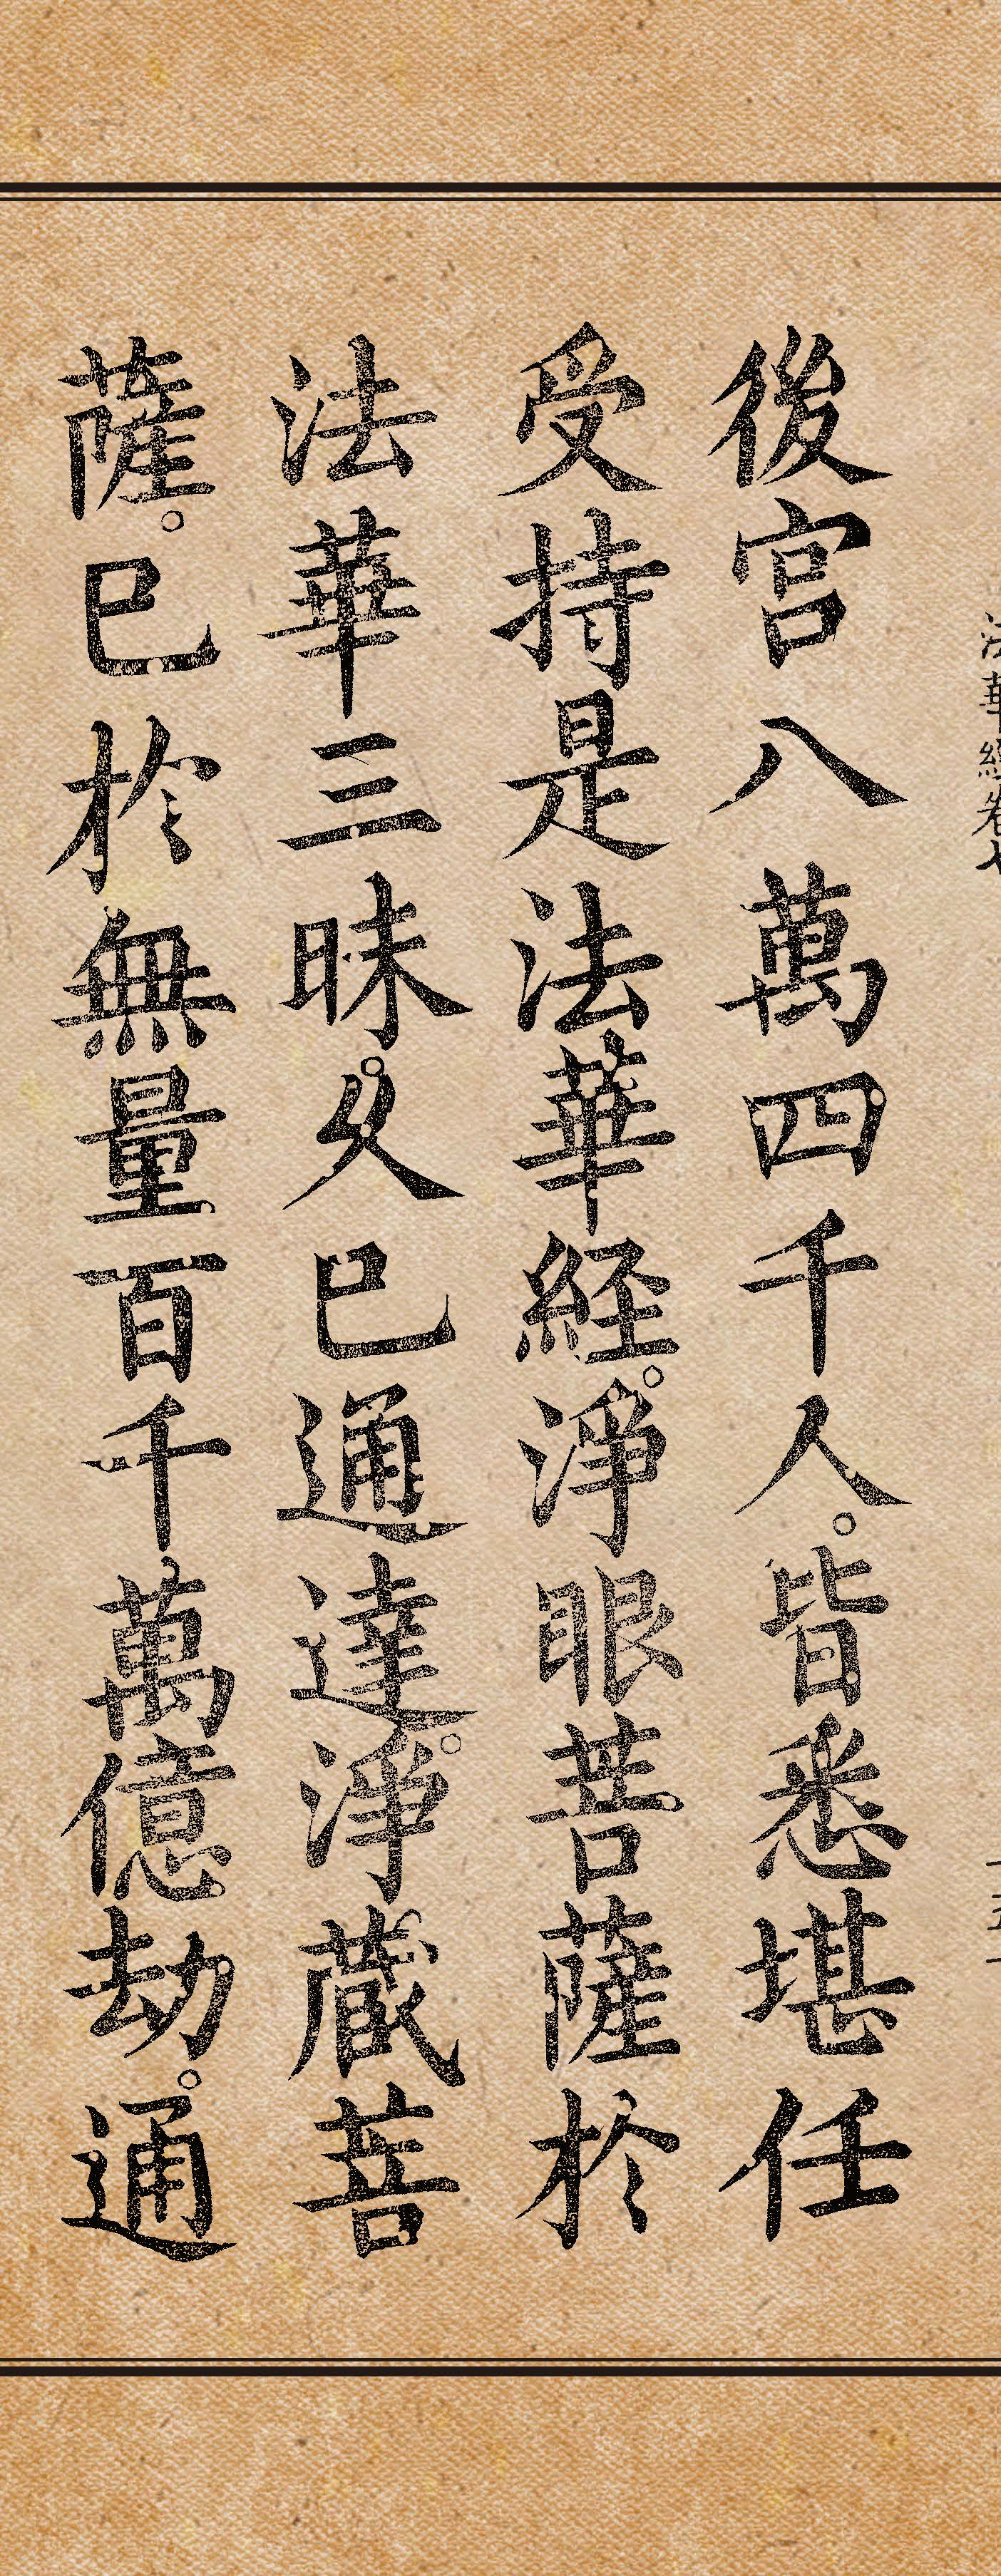 法華經卷七
後宮八萬四千人。皆悉堪任
受持是法華経。淨眼菩薩於
法華三昧。久已通達。淨藏菩
薩。已於無量百千萬億劫。通